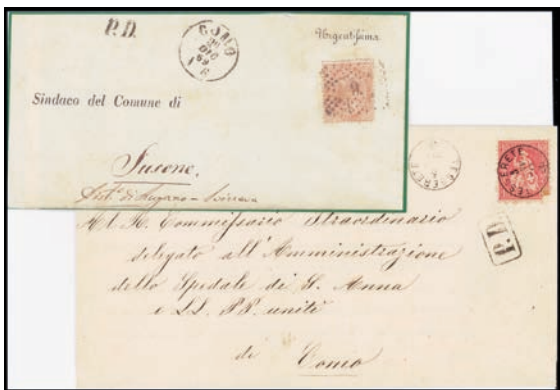 P.D.
COMO
26
DIC
69
Urgentissima
Sindaco del Comune di
Susone.
Dist.° di Lugano - Svizzera
TESSERETE
TESSERETE
P.D
Al R. Commissario Straordinario
delegato all'Amministrazione
dello Spedale di S. Anna
e LL. PP. uniti
di Como